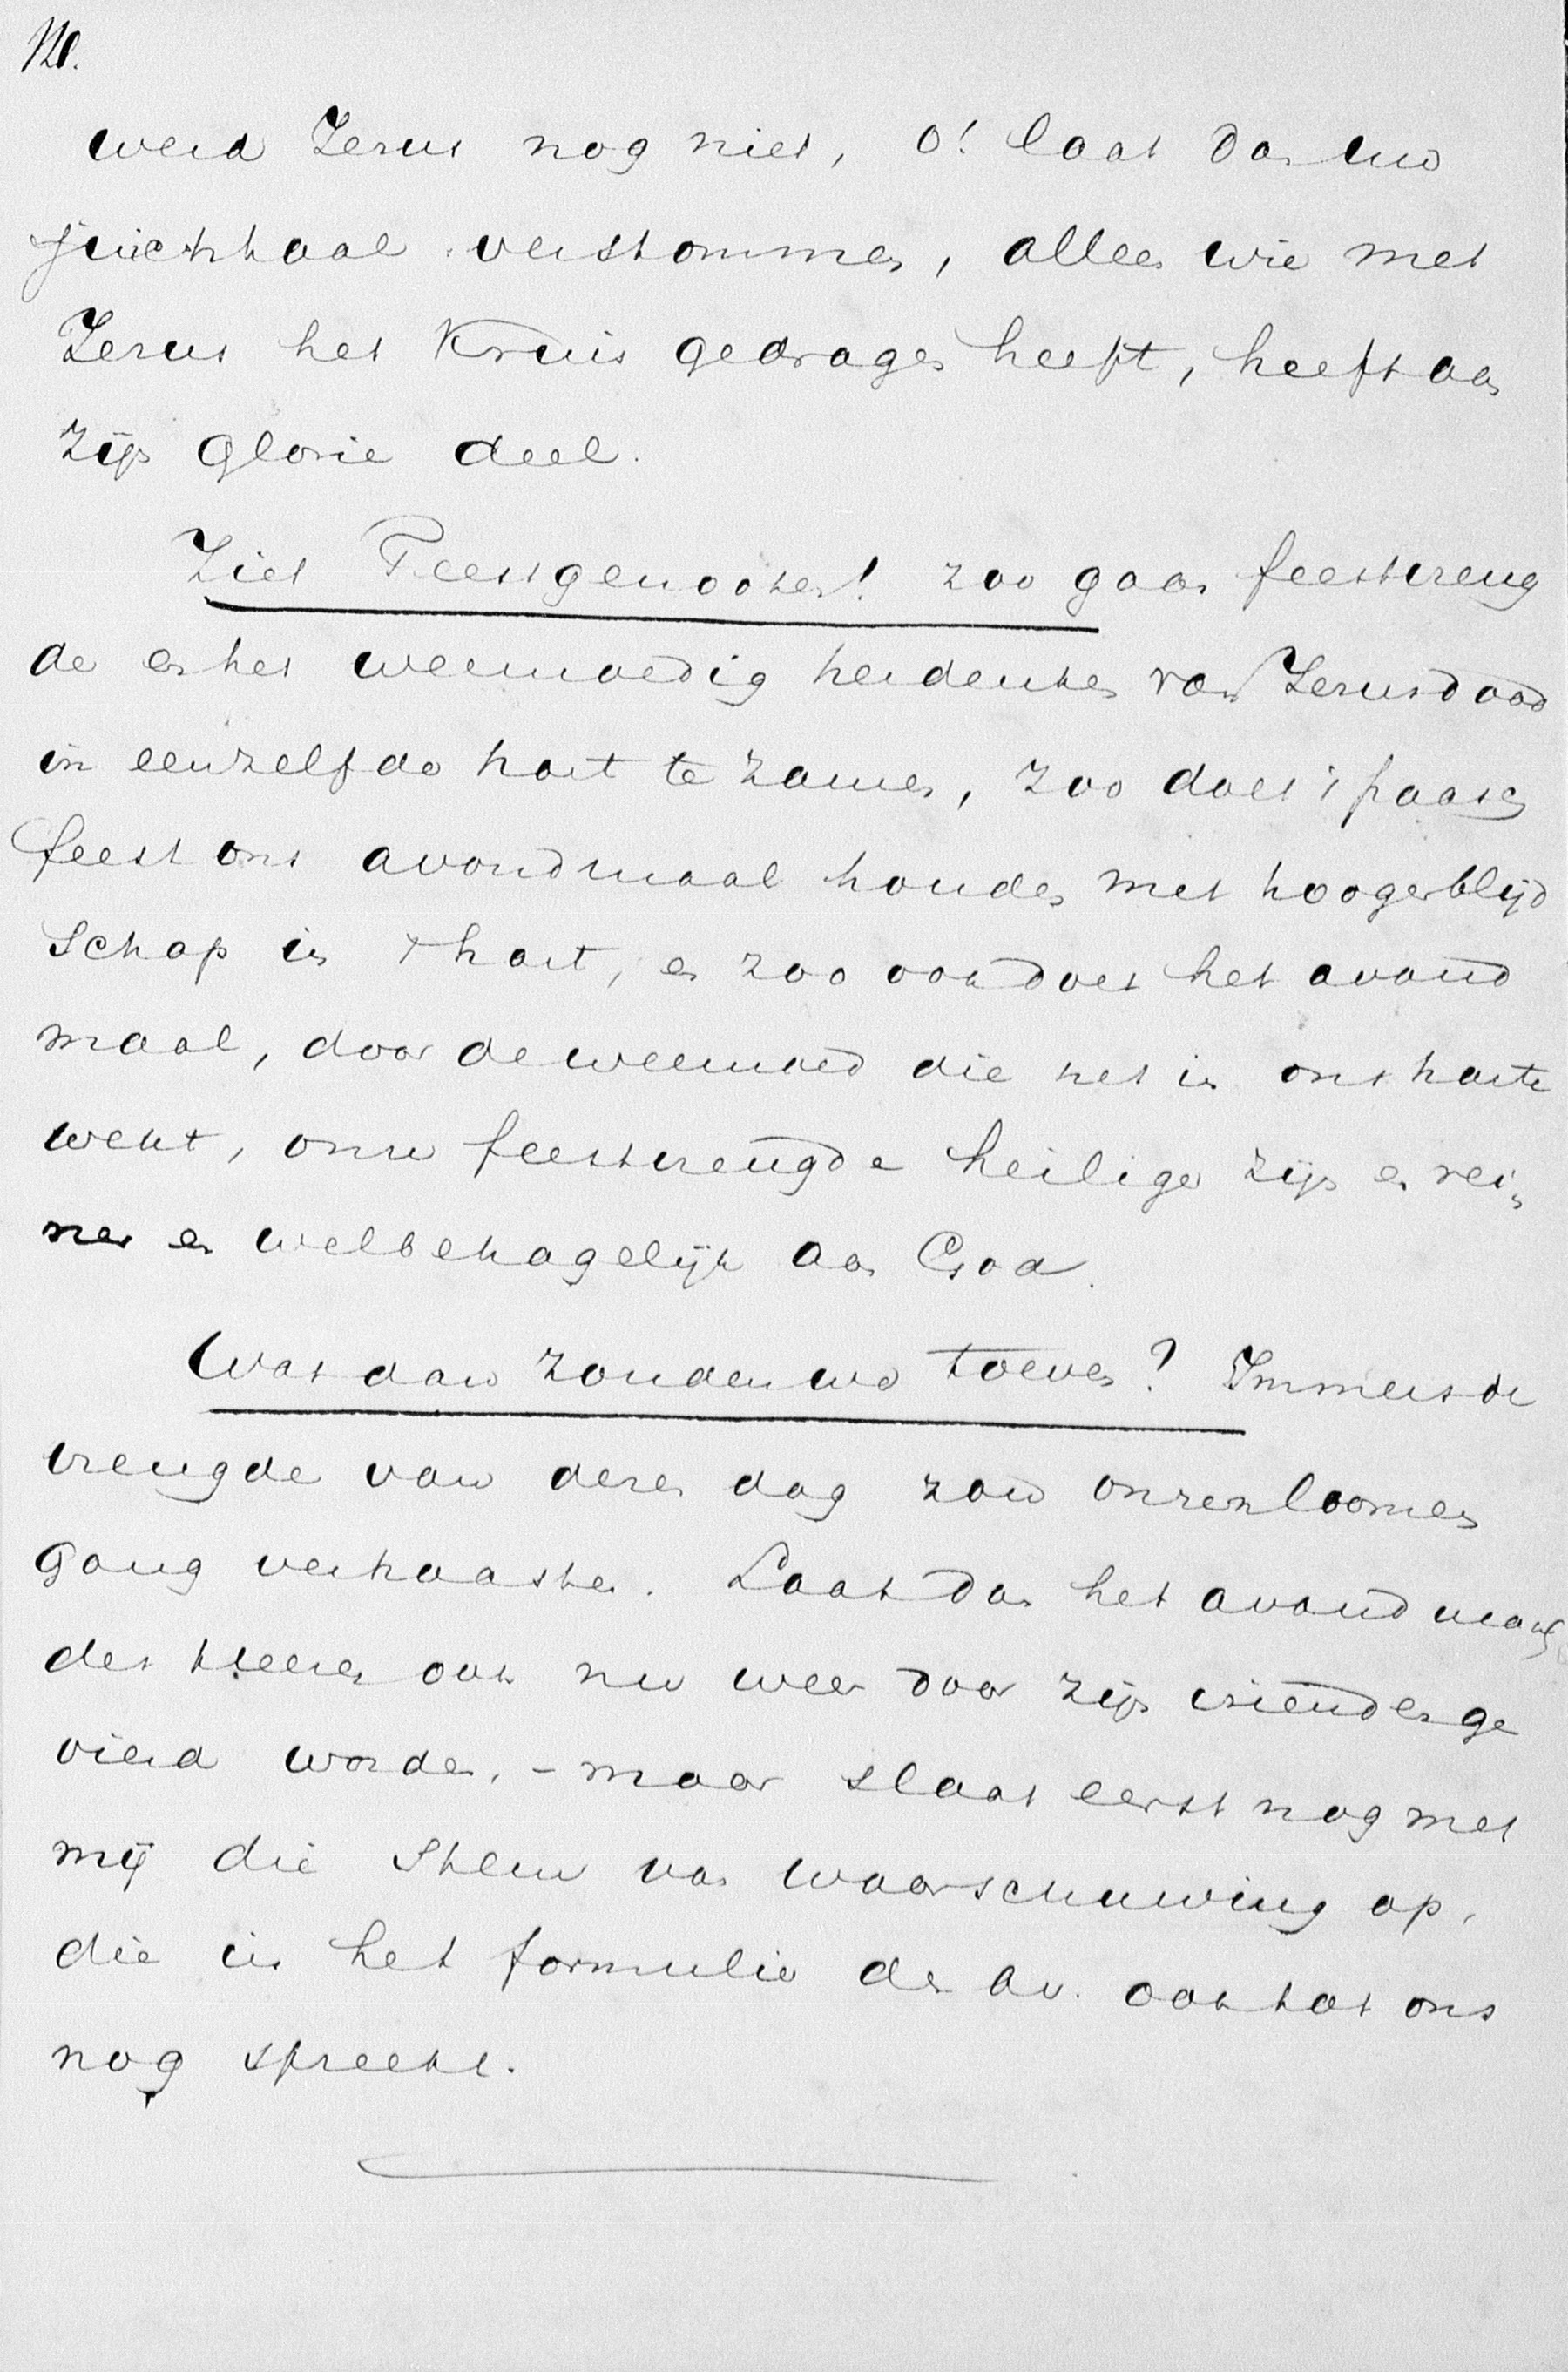 werd Jezus nog niet, o! laat dan uw
juichthaal verstommen, alleen wie met
Jezus het Kruis gedragen heeft, heeft aan
zijn glorie deel.
Ziet Feestgenooten! zoo gaan feestvreug
de en het weemoedig herdenken van Jezus dood
in eenzelfde hart te zamen, zoo doet 't paasch
feest ons avondmaal houden met hooger blijd
schap in 't hart, en zoo ook doet het avond
maal, door de weemoed die het in ons harte
wekt, onze feestvreugde heiliger zijn en rei,,
ner en welbehagelijk aan God.
Wat dan zouden we toeven? Immers de
vreugde van dezen dag zou onzen loomen
gang verhaasten. Laat dan het avondmaal
des Heeren ook nu weer door zijn vrienden ge
vierd worden, - maar slaat eerst nog met
mij die stem van waarschuwing op,
die in het formulier des Av. ook tot ons
nog spreekt.